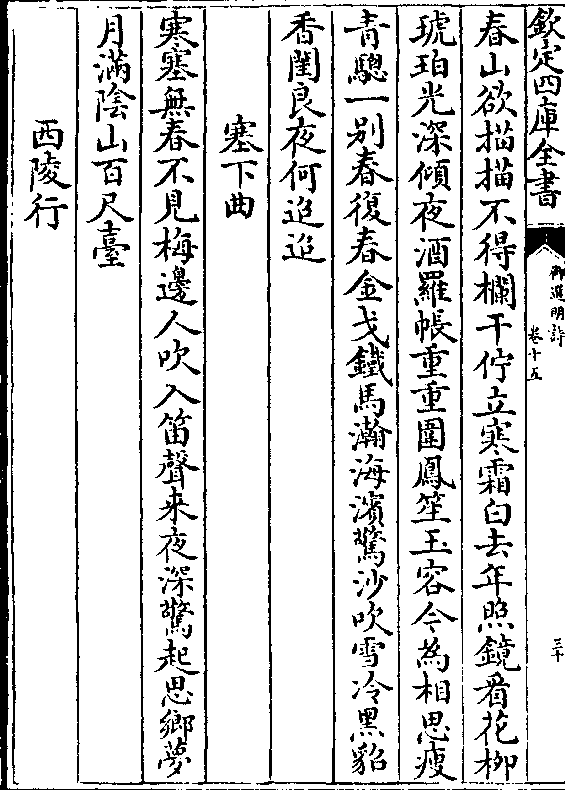 欽定四庫全書
御選明詩
卷十五
三十
春山欲描描不得欄干佇立寒霜白去年照鏡看花柳
琥珀光深傾夜酒羅帳重重圍鳳笙玉容今為相思瘦
青驄一别春復春金戈鐵馬瀚海濱驚沙吹雪冷黑貂
香閨良夜何迢迢
塞下曲
寒塞無春不見梅邊人吹入笛聲来夜深驚起思鄉夢
月滿陰山百尺臺
西陵行